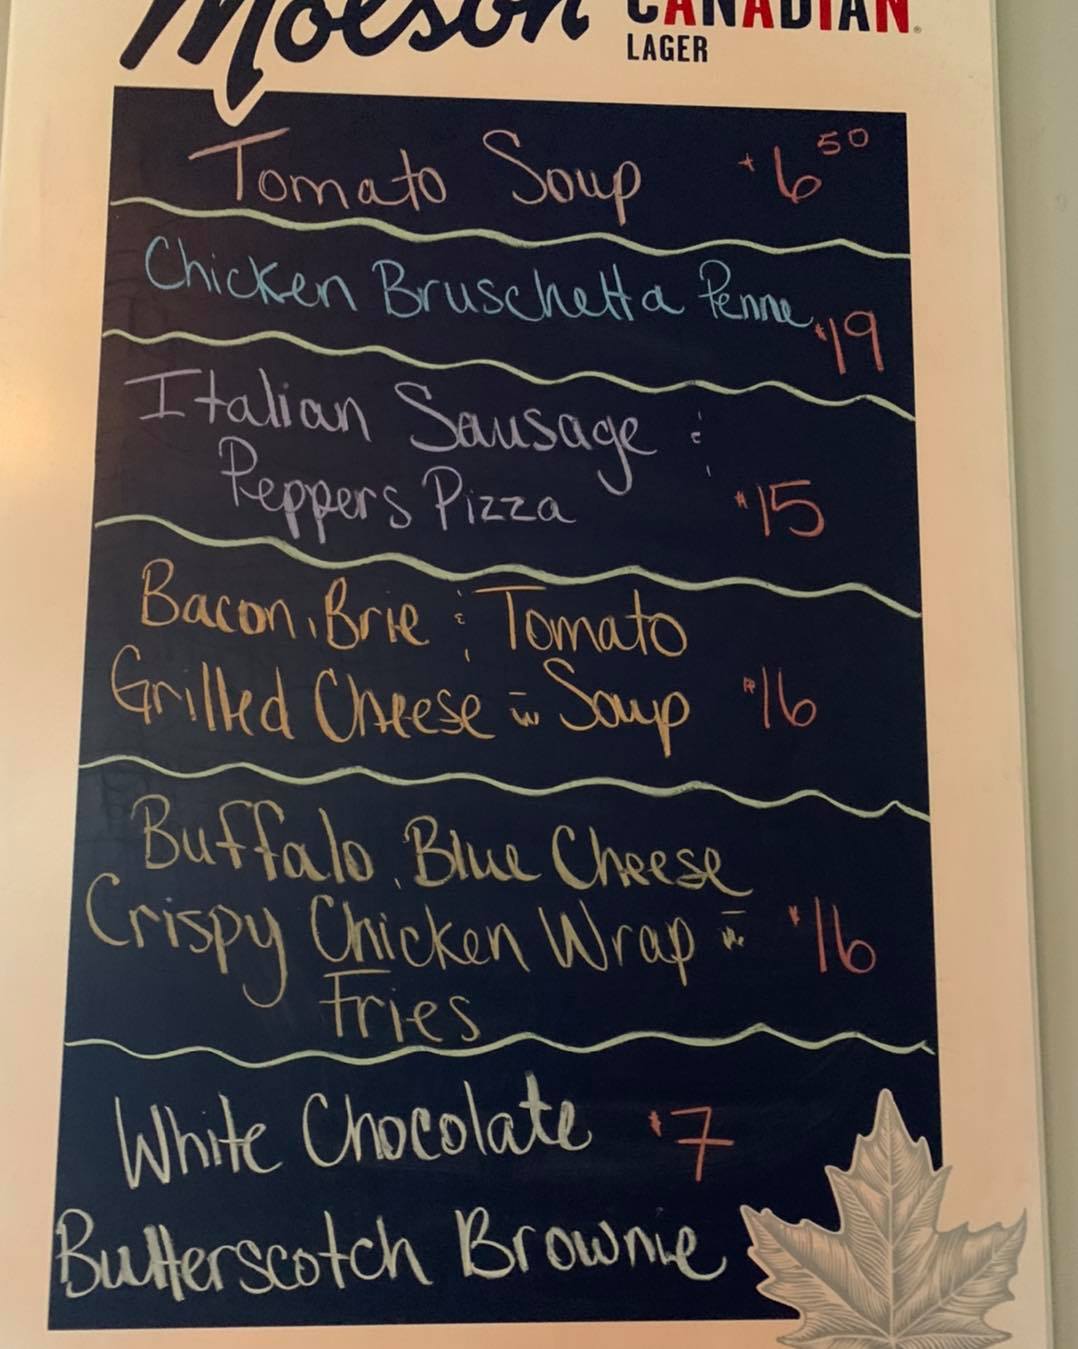 Molson CANADIAN.
LAGER
Tomato Soup $6 50
Chicken Bruschetta Penne $19
Italian Sausage &
Peppers Pizza $15
Bacon, Brie & Tomato
Grilled Cheese w Soup $16
Buffalo, Blue Cheese
Crispy Chicken Wrap w $16
Fries
White Chocolate $7
Butterscotch Brownie